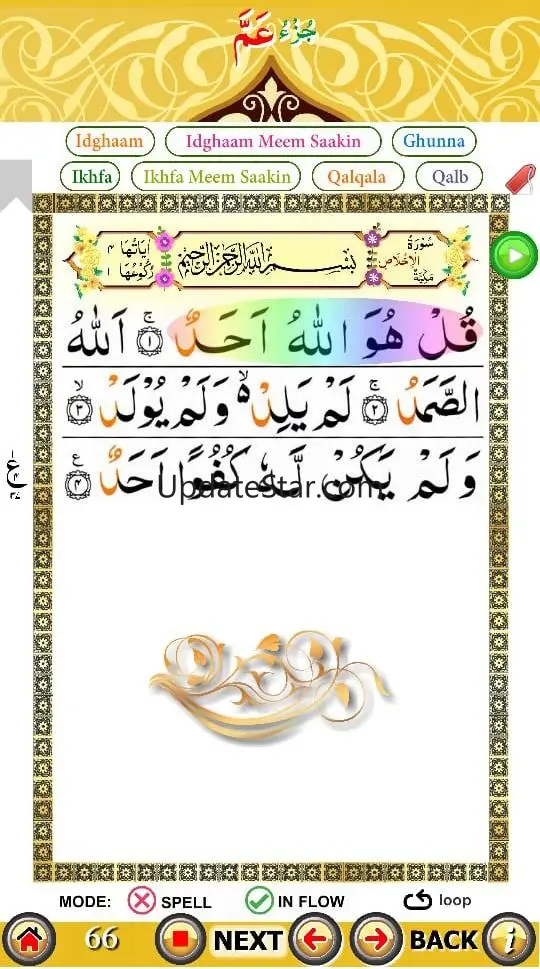 جُزْءُ عَمَّ
Idghaam Idghaam Meem Saakin Ghunna
Ikhfa Ikhfa Meem Saakin Qalqala Qalb
سُوْرَةُ الْاِخْلَاصِ مَكِّيَّةٌ
بِسْمِ اللّٰهِ الرَّحْمٰنِ الرَّحِيْمِ
اٰيَاتُهَا ٤
رُكُوْعُهَا ١
قُلْ هُوَ اللّٰهُ اَحَدٌ ۚ ﴿١﴾ اَللّٰهُ
الصَّمَدُ ۚ ﴿٢﴾ لَمْ يَلِدْ ۙ۬ وَلَمْ يُوْلَدْ ۙ ﴿٣﴾
وَلَمْ يَكُنْ لَّهٗ كُفُوًا اَحَدٌ ﴿٤﴾ ع
UpdateStar.com
MODE: SPELL IN FLOW loop
66 NEXT BACK i